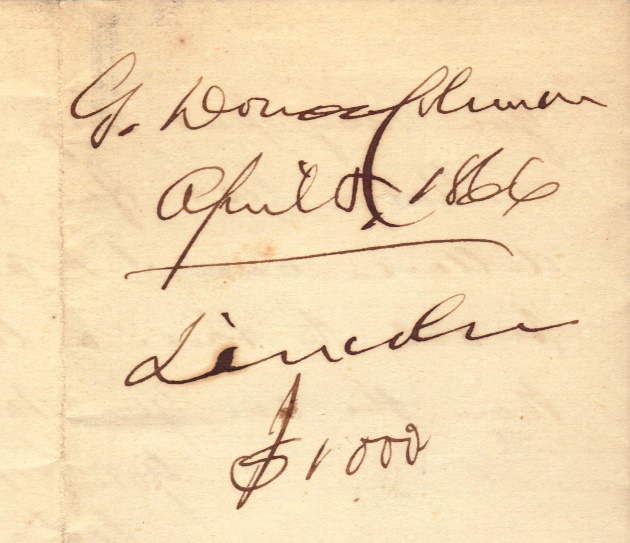 G. Dona Coleman
April 8, 1866
Lincoln
$1000